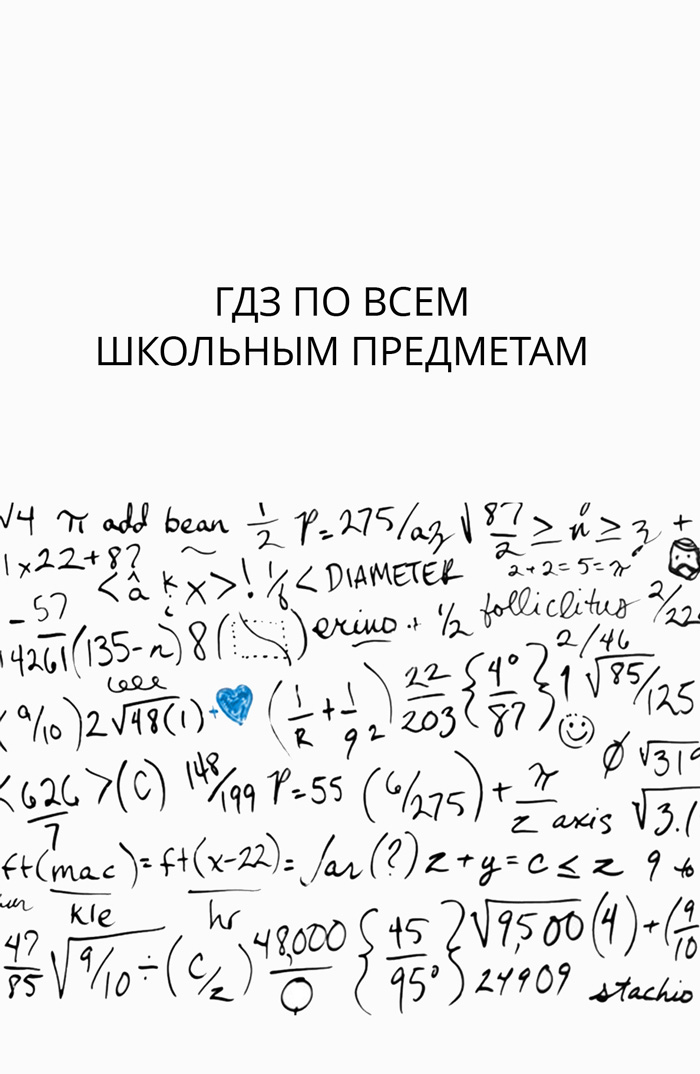 ГДЗ ПО ВСЕМ
ШКОЛЬНЫМ ПРЕДМЕТАМ
√4 π add bean 1/2 P=275/az √87/2 ≥ n ≥ z +
1x22+8?
<â k x>! 1/6 < DIAMETER 2+2=5=π
-57
14261 (135-n) 8 ( ) erino + 1/2 folliclitus 2/22
2/46
9/10) 2√48(1) + (1/R + 1/9 2) 22/203 {4°/87} 1 √85/125
<626/7 >(C) 148/199 P=55 (6/275) + π/z axis Ø √31
√3.1
ft(mac/kle)=ft(x-22/hr)= (?) z+y=c≤z 9
47/85 √9/10 ÷ (c/z) 48,000/O {45/95°} √9,500 (4)+(9/10
24909 stachio